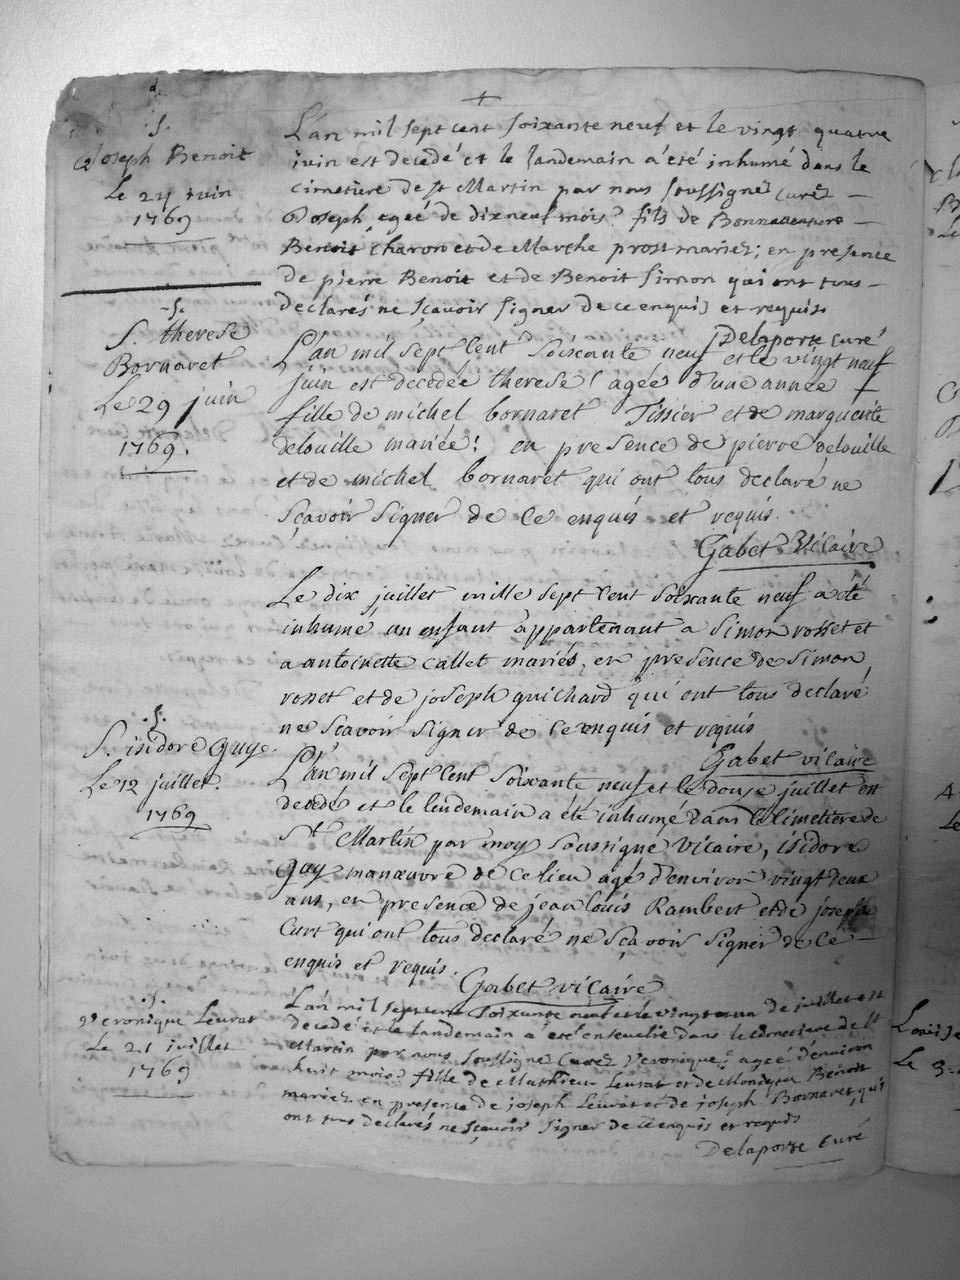 S.
Joseph Benoit
Le 24 juin
1769
L'an mil sept cent soixante neuf et le vingt quatre
juin est decedé et le landemain a été inhumé dans le
cimetière de st Martin par nous soussigné curé
Joseph, ageé de dixneuf mois? fils de Bonnaventure
Benoit charon et de Marthe prost mariez; en présence
de pierre Benoit et de Benoit simon qui ont tous
declarés ne sçavoir signer de ce enquis et requis
Delaporte curé
S.
S. therese
Bornaret
Le 29 juin
1769.
L'an mil sept cent soixante neuf et le vingt neuf
juin est decedée therese! agée d'une année
fille de michel bornaret Tissier et de marguerite
delouille mariée! en presence de pierre delouille
et de michel bornaret qui ont tous declaré ne
sçavoir signer de ce enquis et requis.
Gabet Vicaire
Le dix juillet mille sept cent soixante neuf a été
inhumé un enfant appartenant a Simon rosset et
a antoinette Callet mariés, en presence de Simon
rosset et de joseph guichard qui ont tous declaré
ne sçavoir signer de ce enquis et requis
Gabet vicaire
S.
S. isidore Guye
Le 12 juillet.
1769
L'an mil sept cent soixante neuf et le douze juillet est
decedé et le lendemain a été inhumé dans le cimetière de
St Martin par moy soussigné vicaire, isidore
Guy manœuvre de ce lieu agé d'environ vingt deux
ans, en presence de jean louis Rambert et de joseph
Curt qui ont tous declaré ne sçavoir signer de ce
enquis et requis.
Gabet vicaire
S.
veronique Leurat
Le 21 juillet
1769
L'an mil sept cent soixante neuf et le vingt et un de juillet est
decedé et le landemain a été ensevelie dans le cimetiere de st
Martin par nous soussigné curé Veronique, ageé d'environ
huit mois? fille de Mathieu Leurat et de Benoit
mariez en presence de joseph Leurat et de joseph Bornaret, qui
ont tous declarés ne sçavoir signer de ce enquis et requis
Delaporte curé
Louise
Le 3